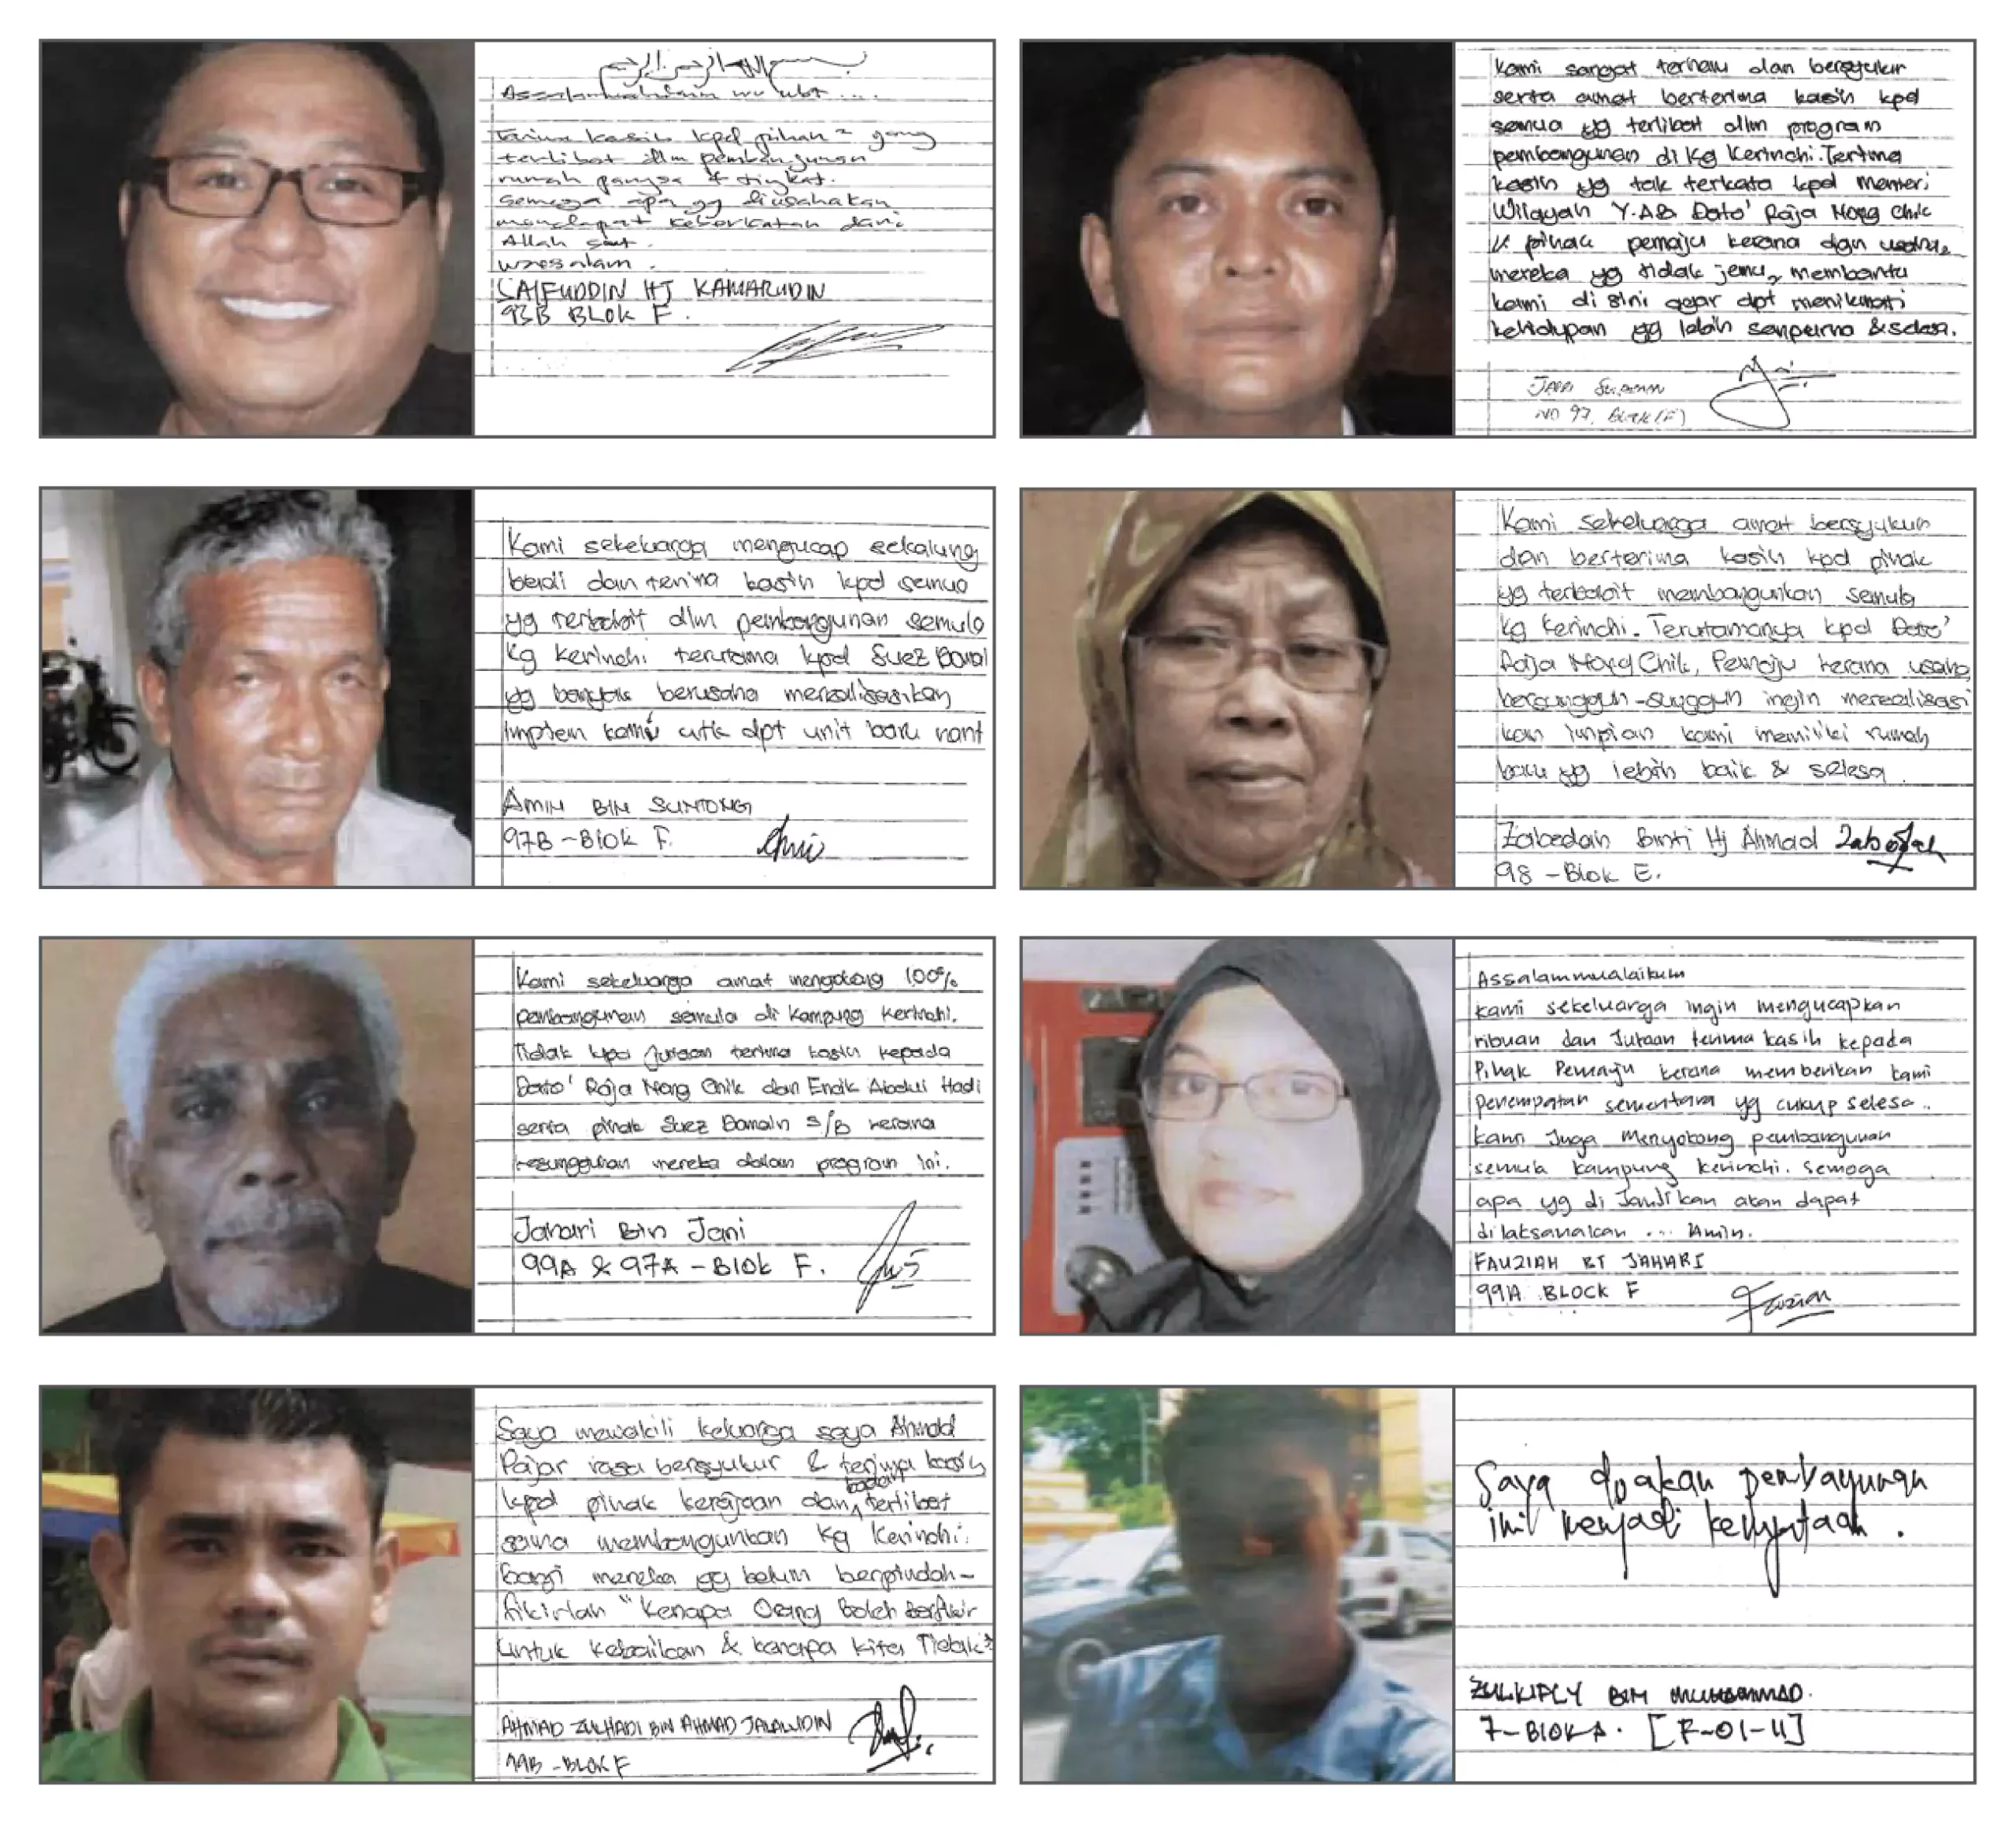 بسم الله الرحمن الرحيم
Assalamualaikum wr wbt ....
Terima kasih kpd pihak² yang
terlibat dlm pembangunan
rumah pangsa 4 tingkat.
Semoga apa yg diusahakan
mendapat keberkatan dari
Allah swt.
wassalam.
SAIFUDDIN HJ KAMARUDIN
93B BLOK F.
Kami sangat terharu dan bersyukur
serta amat berterima kasih kpd
semua yg terlibat dlm program
pembangunan di Kg Kerinchi. Terima
kasih yg tak terkata kpd Menteri
Wilayah Y.AB Dato' Raja Nong Chik
pihak pemaju kerana dgn usaha²
mereka yg tidak jemu² membantu
kami di sini agar dpt menikmati
kehidupan yg lebih sempurna & selesa.
NO 97, BLOK (F)
Kami sekeluarga mengucap sekalung
budi dan terima kasih kpd semua
yg terbabit dlm pembangunan semula
Kg Kerinchi terutama kpd Suez Domal
yg banyak berusaha merealisasikan
kami utk dpt unit baru nant
AMIN BIN SUNTONG
97B - Blok F.
Kami sekeluarga amat bersyukur
dan berterima kasih kpd pihak
yg terbabit membangunkan semula
Kg Kerinchi. Terutamanya kpd Dato'
Raja Nong Chik, Pemaju kerana usaha
bersungguh-sungguh ingin merealisasi
kan impian kami memiliki rumah
baru yg lebih baik & selesa.
Zabedah Binti Hj Ahmad Zabedah
98 - Blok E.
Kami sekeluarga amat menyokong 100%
pembangunan semula di Kampung Kerinchi.
Tidak lupa jutaan terima kasih kepada
Dato' Raja Nong Chik dan Encik Abdul Hadi
serta pihak Suez Domain S/B kerana
kesungguhan mereka dalam program ini.
Jahari Bin Jani
99A & 97A - Blok F.
Assalammualaikum
Kami sekeluarga ingin mengucapkan
ribuan dan Jutaan terima kasih kepada
Pihak Pemaju kerana memberikan kami
penempatan sementara yg cukup selesa.
kami Juga Menyokong pembangunan
semula kampung kerinchi. Semoga
apa yg di Janjikan akan dapat
dilaksanakan ... Amin.
FAUZIAH BT JAHARI
99A BLOCK F
Fauziah
Saya mewakili keluarga saya Ahmad
Pajar rasa bersyukur & terima kasih
kpd pihak kerajaan dan badan terlibat
sama membangunkan Kg Kerinchi.
bagi mereka yg belum berpindah -
fikirlah "Kenapa Orang Boleh Berfikir
Untuk Kebaikan & kenapa kita Tidak?
AHMAD ZULHADI BIN AHMAD JALALUDIN
99B - BLOK F
Saya doakan pembangunan
ini menjadi kenyataan.
ZULKIFLY BIN MUHAMMAD.
7-BLOK A. [F-01-11]